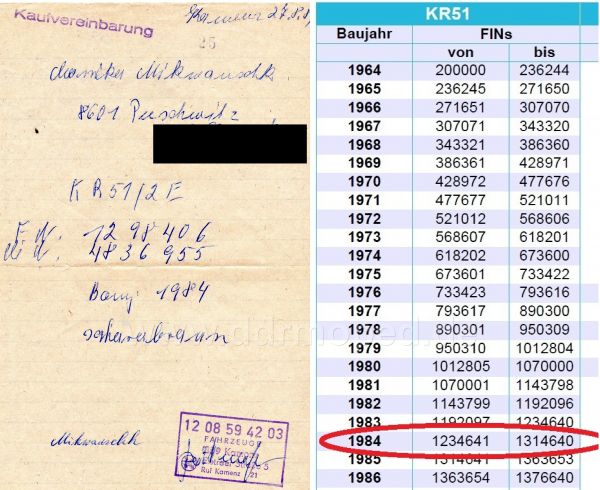 Kaufvereinbarung
Kamenz
25
8601 Puschwitz
KR51/2E
F. Nr. 1298406
M. Nr. 4836955
Bauj. 1984
saharabraun
12 08 59 42 03
FAHRZEUGE
Kamenz
Ruf Kamenz 21
www.ddrmoped.de
KR51
Baujahr FINs
von bis
1964 200000 236244
1965 236245 271650
1966 271651 307070
1967 307071 343320
1968 343321 386360
1969 386361 428971
1970 428972 477676
1971 477677 521011
1972 521012 568606
1973 568607 618201
1974 618202 673600
1975 673601 733422
1976 733423 793616
1977 793617 890300
1978 890301 950309
1979 950310 1012804
1980 1012805 1070000
1981 1070001 1143798
1982 1143799 1192096
1983 1192097 1234640
1984 1234641 1314640
1985 1314641 1363653
1986 1363654 1376640